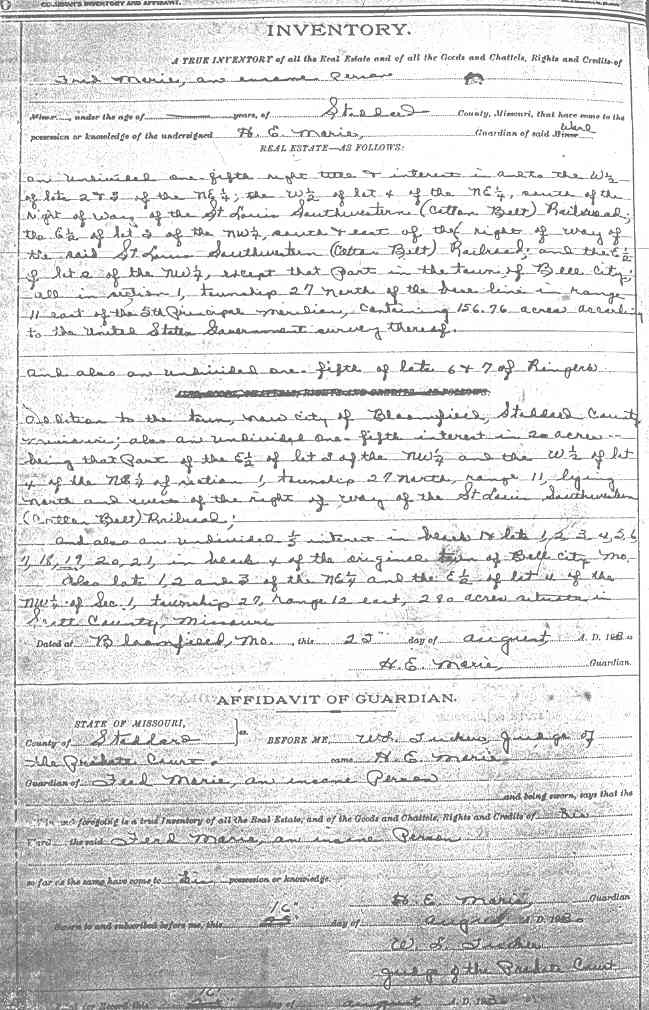 GUARDIAN'S INVENTORY AND AFFIDAVIT.
INVENTORY.
A TRUE INVENTORY of all the Real Estate and of all the Goods and Chattels, Rights and Credits of
Fred Marie, an insane Person
Minor, under the age of years, of Stoddard County, Missouri, that have come to the
possession or knowledge of the undersigned H. E. Marie, Guardian of said Minor Ward
REAL ESTATE—AS FOLLOWS:
an undivided one-fifth right title & interest in and to the W½
of lots 2 & 3 of the NE¼; the W½ of lot 4 of the NE¼, south of the
right of way of the St Louis Southwestern (Cotton Belt) Railroad;
the E½ of lot 3 of the NW¼, south & east of the right of way of
the said St Louis Southwestern (Cotton Belt) Railroad; and the E½
of lot 2 of the NW¼, except that Part in the town of Bell City;
all in section 1, township 27 North of the base line in range
11 east of the 5th Principal Meridian, containing 156.76 acres according
to the United States Government survey thereof.
And also an undivided one-fifth of lots 6 & 7 of Ringers
ALSO, GOODS, CHATTELS, RIGHTS AND CREDITS—AS FOLLOWS:
Addition to the town, now city of Bloomfield, Stoddard County
Missouri; also an undivided one-fifth interest in 20 acres--
being that Part of the E½ of lot 3 of the NW¼ and the W½ of lot
4 of the NE¼ of section 1, township 27 North, range 11, lying
north and west of the right of way of the St Louis Southwestern
(Cotton Belt) Railroad;
And also an undivided 1/5 interest in lots 1, 2, 3, 4, 5, 6
18, 19, 20, 21, in block 4 of the original town of Bell City Mo.
Also lots 1, 2 and 3 of the NE¼ and the E½ of lot 4 of the
NW¼ of Sec. 1, township 27, range 12 east, 280 acres situate in
Scott County, Missouri
Dated at Bloomfield, Mo., this 25 day of August, A. D.
H. E. Marie, Guardian.
AFFIDAVIT OF GUARDIAN.
STATE OF MISSOURI,
County of Stoddard ss. BEFORE ME, W. L. Tucker Judge of
the Probate Court came H. E. Marie
Guardian of Fred Marie, an insane Person
and being sworn, says that the
foregoing is a true Inventory of all the Real Estate, and of the Goods and Chattels, Rights and Credits of his
Ward the said Fred Marie, an insane Person
so far as the same have come to his possession or knowledge.
H. E. Marie, Guardian
Sworn to and subscribed before me, this 16" day of August, A. D.
W. L. Tucker
Judge of the Probate Court
for Record this 16" day of August A. D.